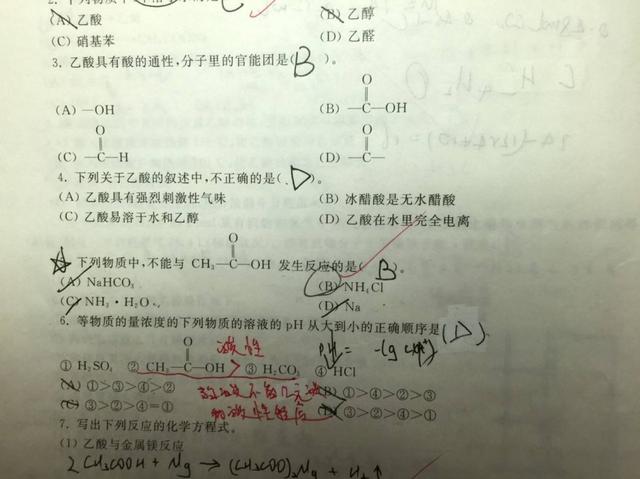 (A) 乙酸 (B) 乙醇
(C) 硝基苯 (D) 乙醛
3. 乙酸具有酸的通性,分子里的官能团是( B )。
O
(A) —OH (B) —C—OH
O O
(C) —C—H (D) —C—
4. 下列关于乙酸的叙述中,不正确的是( D )。
(A) 乙酸具有强烈刺激性气味 (B) 冰醋酸是无水醋酸
(C) 乙酸易溶于水和乙醇 (D) 乙酸在水里完全电离
O
下列物质中,不能与 CH₃—C—OH 发生反应的是( B )。
(A) NaHCO₃ (B) NH₄Cl
(C) NH₃·H₂O (D) Na
6. 等物质的量浓度的下列物质的溶液的 pH 从大到小的正确顺序是(D)
酸性
O
① H₂SO₄ ② CH₃—C—OH > ③ H₂CO₃ ④ HCl
(A) ①>③>④>② (B) ①>④>②>③
(C) ③>②>④=① (D) ③>②>④>①
7. 写出下列反应的化学方程式。
(1) 乙酸与金属镁反应
2CH₃COOH + Mg → (CH₃COO)₂Mg + H₂↑